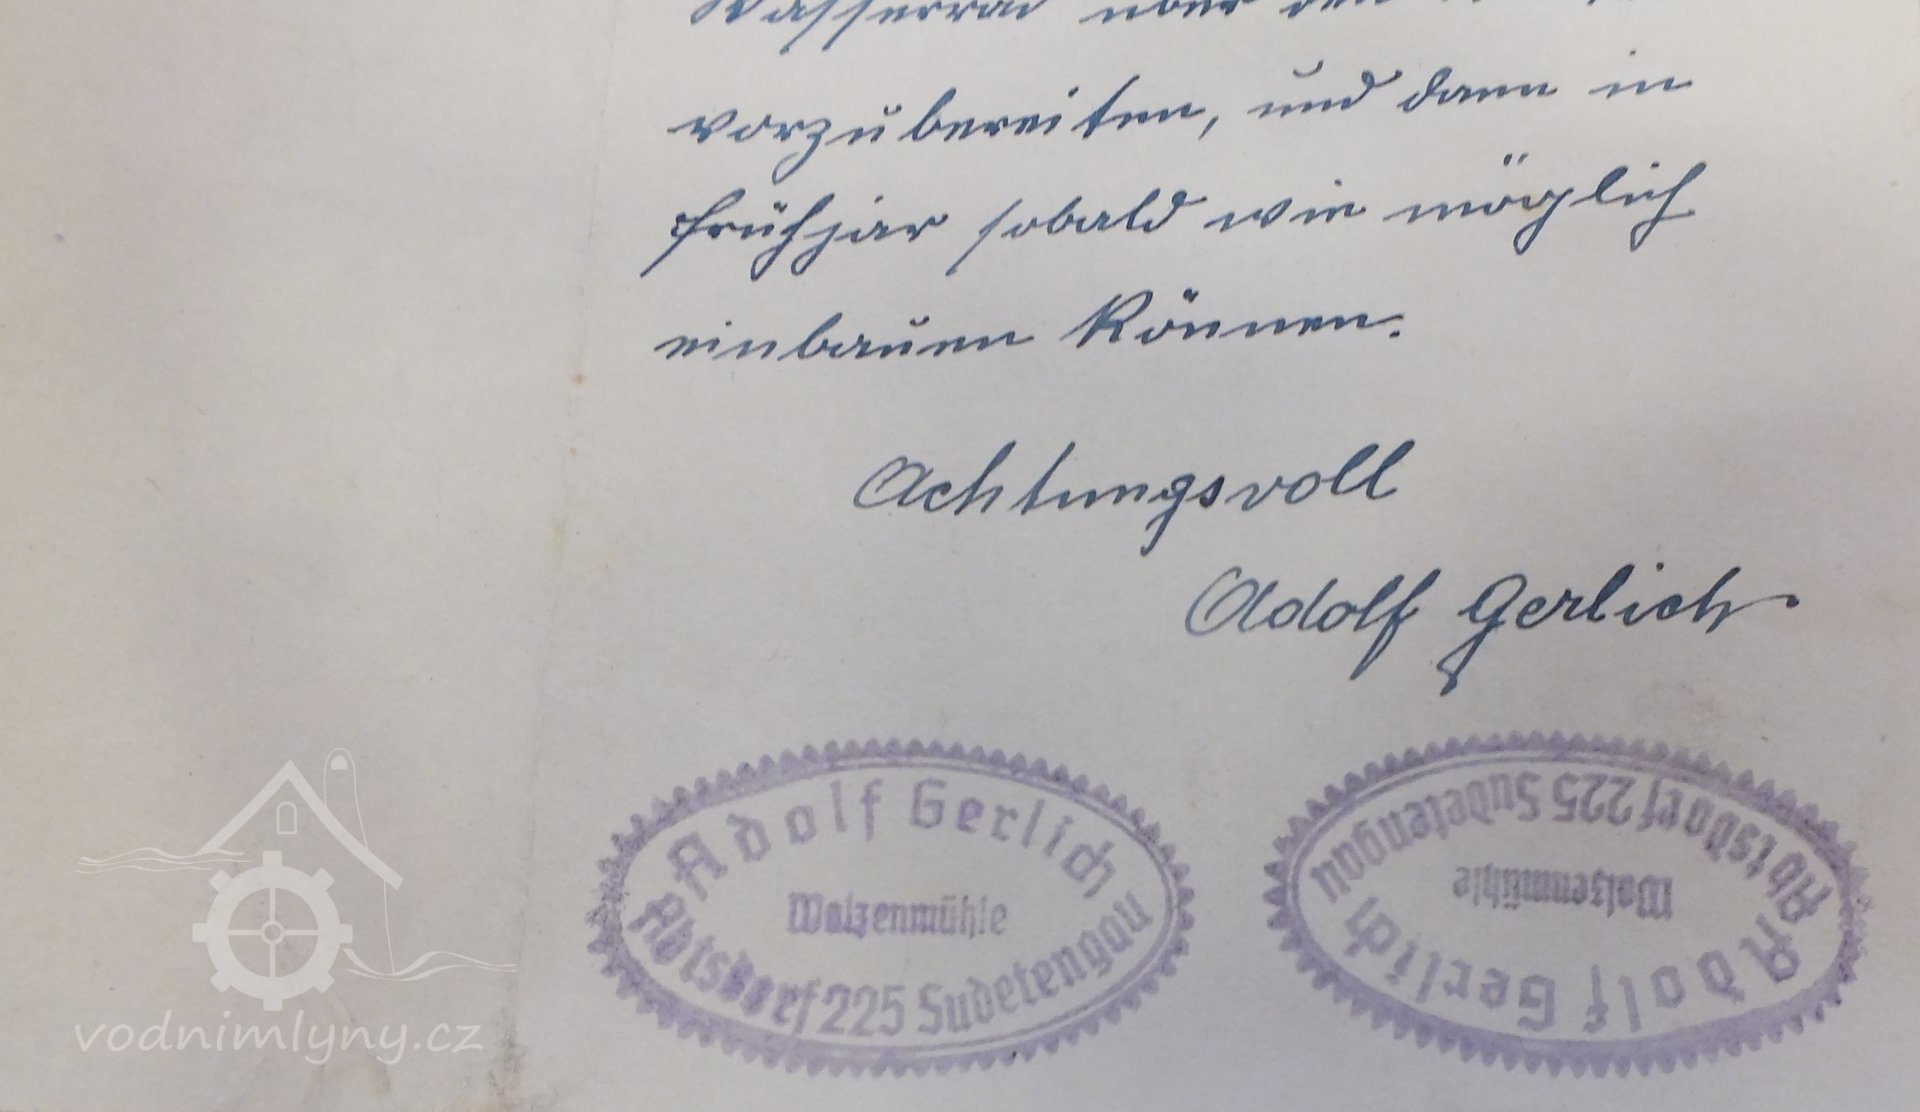 Wasserrad über den
vorzubereiten, und dann in
frühjar sobald wie möglich
einbauen können.
Achtungsvoll
Adolf Gerlich
Adolf Gerlich
Walzenmühle
Abtsdorf 225 Sudetengau
Adolf Gerlich
Walzenmühle
Abtsdorf 225 Sudetengau
vodnimlyny.cz